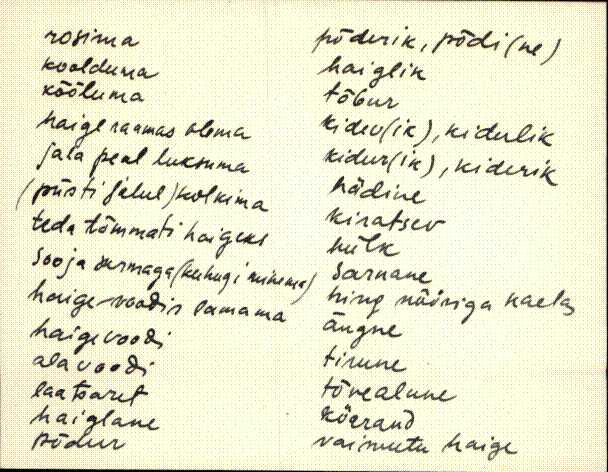 rosima
koolduma
kõõluma
haige raamas olema
jala peal luksuma
(püsti jalul) kolkima
teda tõmmati haigeks
sooja surmaga (kuhugi minema)
haige-voodis lamama
haigevoodi
alavoodi
laatsaret
haiglane
põdur
põderik, põdi(ne)
haiglik
tõbur
kidev(ik), kidulik
kidur(ik), kiderik
hädine
kiratsev
hülk
sarnane
hing nööriga kaelas
ängne
tirune
tõvealune
köerand
vaimutu haige